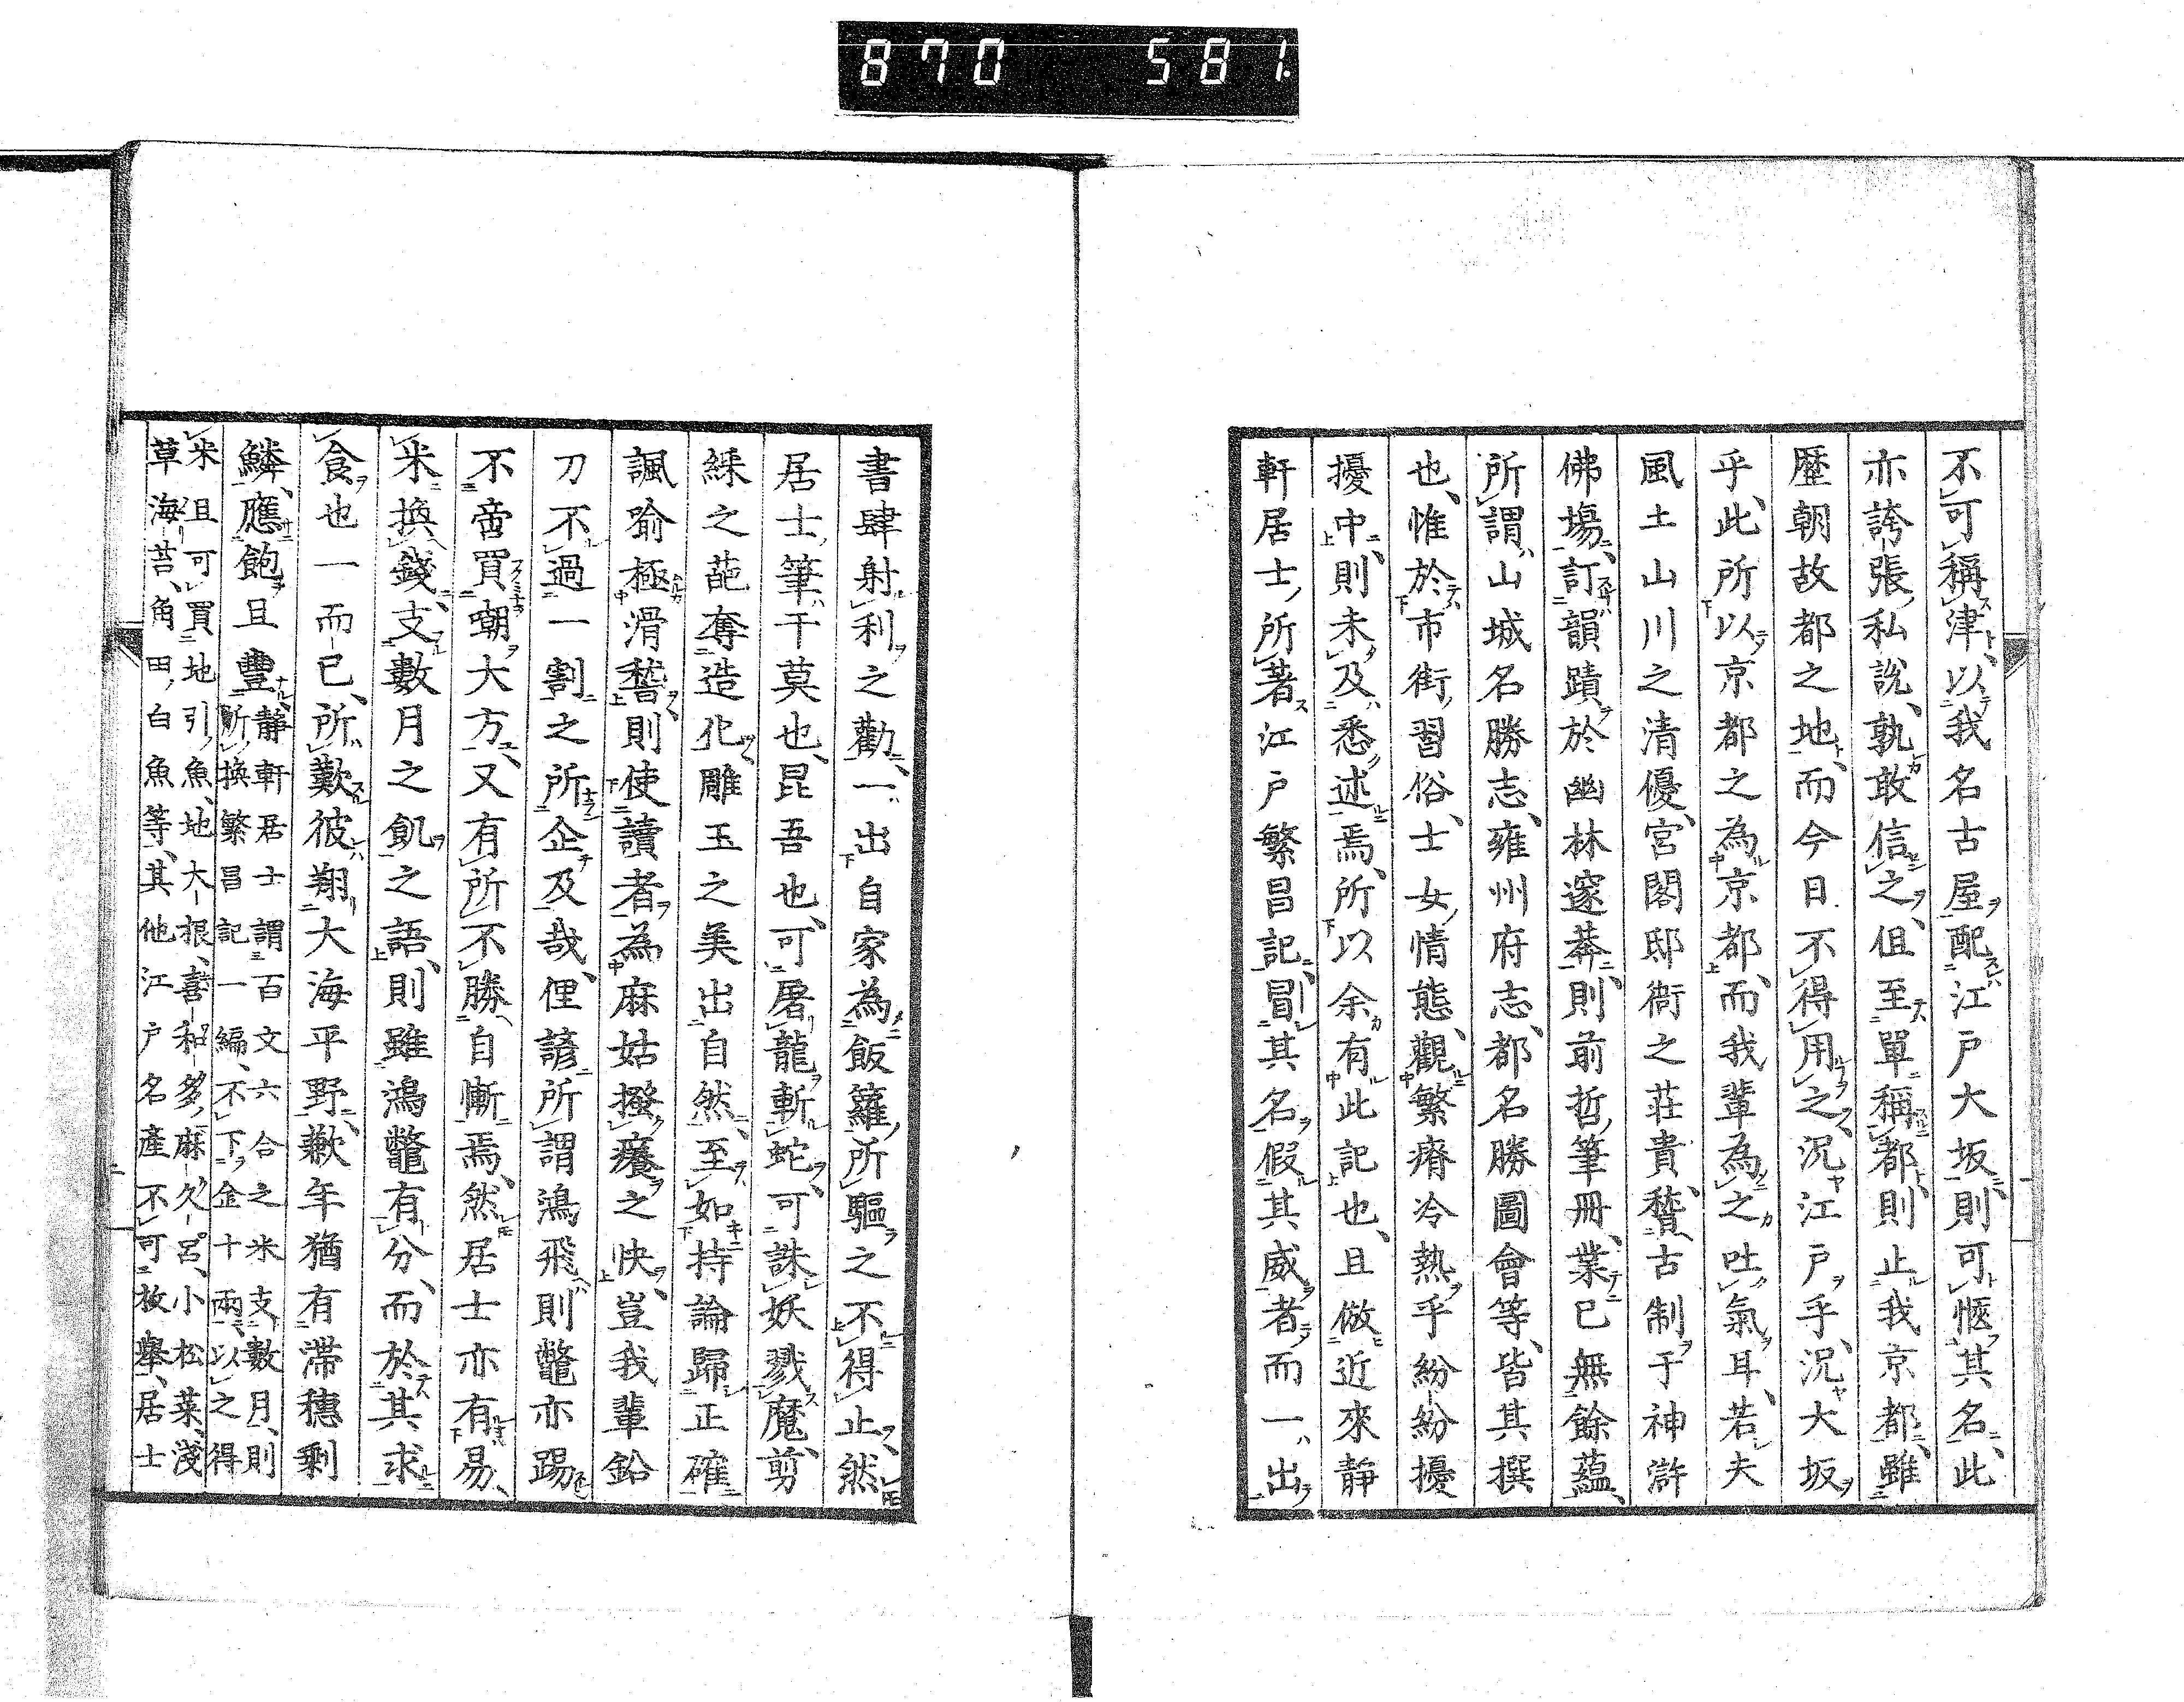 870 581
不可稱津以我名古屋配江戸大坂則可愜其名此
亦誇張私説孰敢信之但至單稱都則止我京都雖
歴朝故都之地而今日不得用之況江戸乎況大坂
乎此所以京都之為京都而我輩為之吐氣耳若夫
風土山川之清優宮閣邸衙之荘貴稽古制于神澣
佛塲訂韻蹟於幽林邃莽則前哲筆冊業已無餘蘊
所謂山城名勝志雍州府志都名勝圖會等皆其撰
也惟於市街習俗士女情態觀繁瘠冷熱乎紛紛擾
擾中則未及悉述焉所以余有此記也且倣近來靜
軒居士所著江戸繁昌記冒其名假其威者而一出
書肆射利之勸一出自家為飯籮所驅之不得止然
居士筆干莫也昆吾也可屠龍斬蛇可誅妖戮魔剪
綵之葩奪造化雕玉之美出自然至如持論歸正確
諷喻極滑稽則使讀者為麻姑撥癢之快豈我輩鉛
刀不過一割之所企及哉俚諺所謂鴻飛則鼈亦踢
不啻買嘲大方又有所不勝自慚焉然居士亦有易
米換錢支數月之飢之語則雖鴻鼈有分而於其求
食也一而已所歎彼翔大海平野歉年猶有滯穗剩
鱗應飽且豐靜軒居士謂百文六合之米支數月則
所換繁昌記一編不下金十兩以之得
米且可買地引魚地大根喜和多麻久呂小松菜淺
草海苔角田白魚等其他江戸名產不可枚舉居士